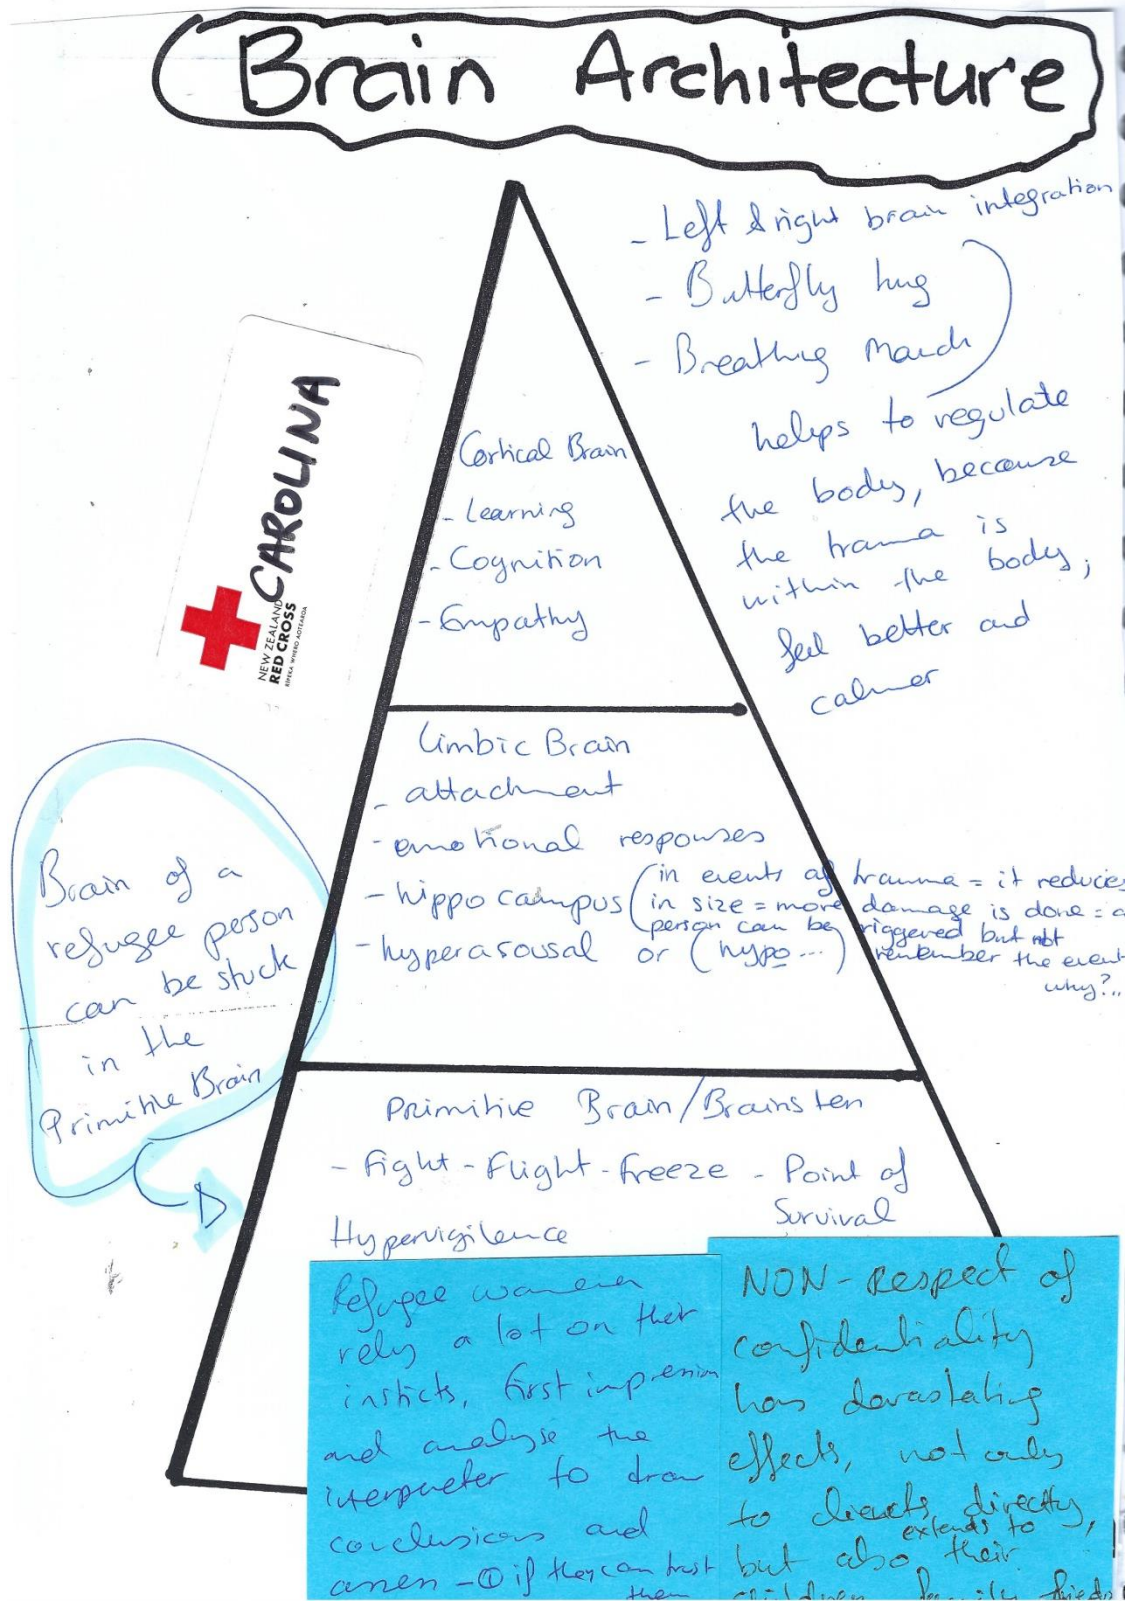 Brain Architecture
- Left & right brain integration
- Butterfly hug
- Breathing
helps to regulate
the body, because
the trauma is
within the body;
feel better and
calmer
CAROLINA
NEW ZEALAND
RED CROSS
RIPEKA WHERO AOTEAROA
Cortical Brain
- Learning
- Cognition
- Empathy
Limbic Brain
- attachment
- emotional responses
- hippocampus (in events of trauma = it reduces
in size = more damage is done = a
person can be triggered but not
remember the event
why?..
- hyperarousal or (hypo...)
Brain of a
refugee person
can be stuck
in the
Primitive Brain
Primitive Brain/Brainsten
- Fight - Flight - Freeze - Point of
Survival
Hypervigilence
Refugee women
rely a lot on their
insticts, first impression
and analyse the
interpreter to draw
conclusions and
assess - ① if they can trust
them
NON-Respect of
confidentiality
has devastating
effects, not only
to clients directly,
extends to
but also their
children family frieds